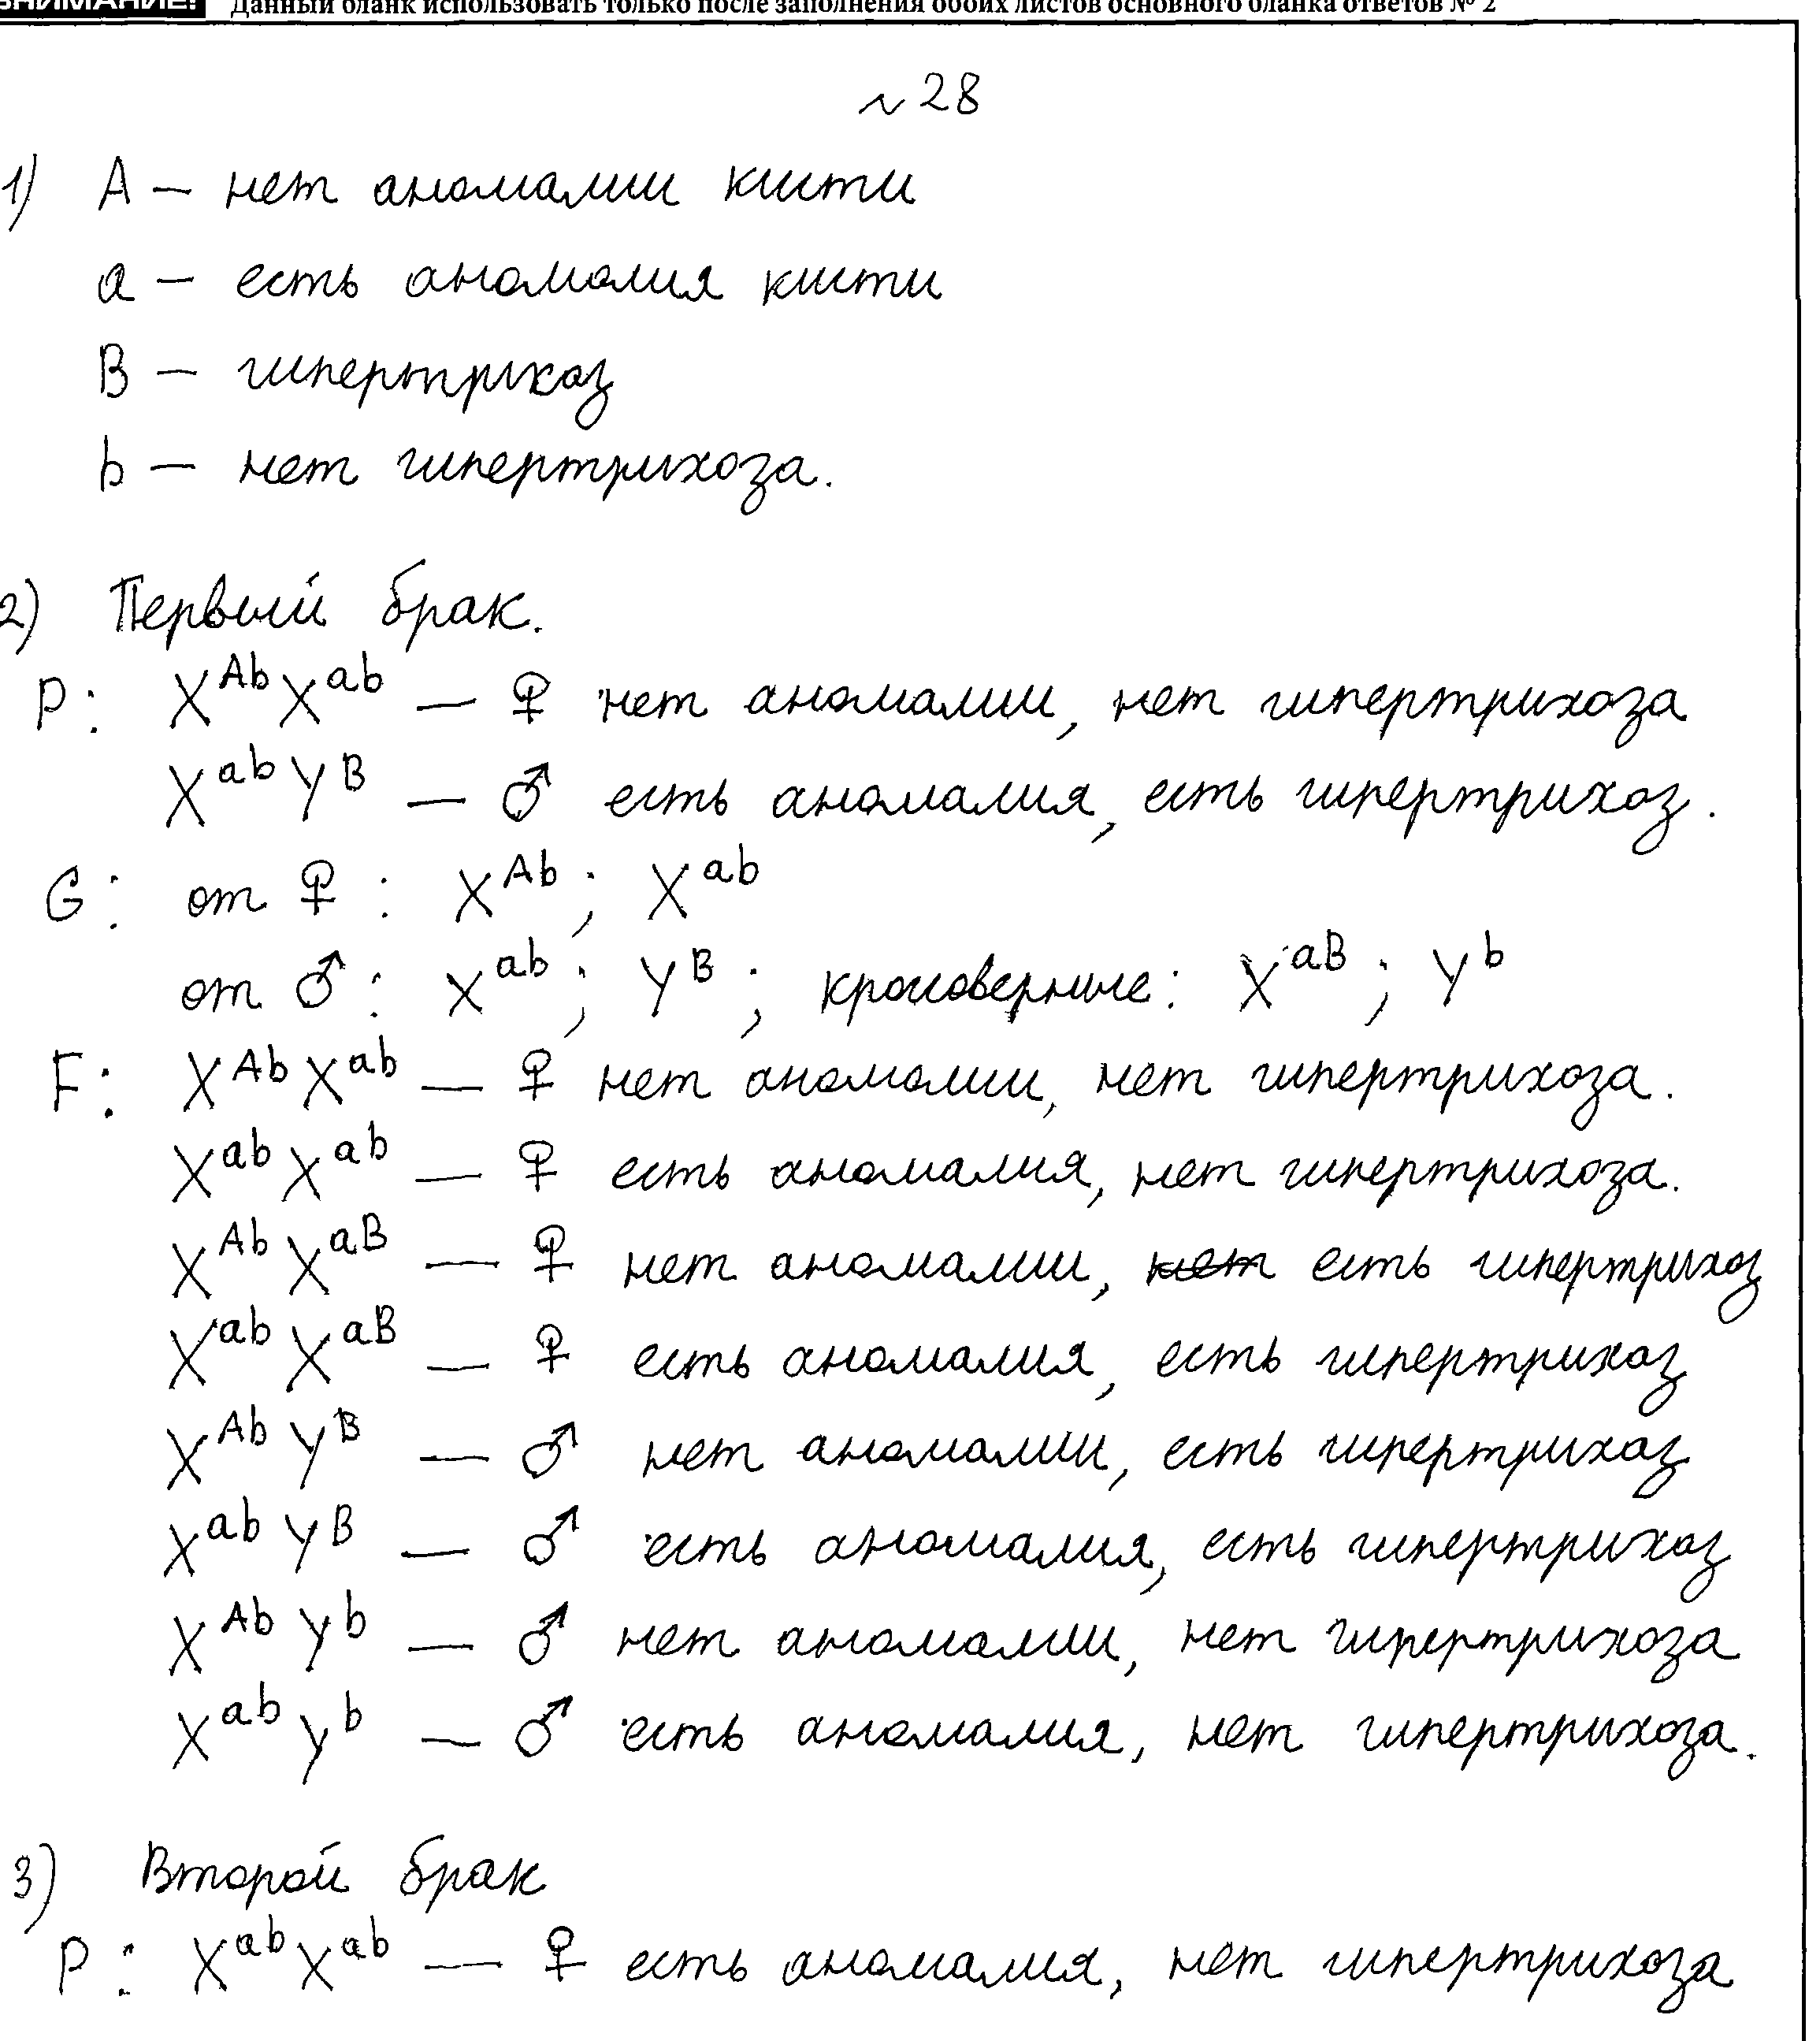 ВНИМАНИЕ! Данный бланк использовать только после заполнения обоих листов основного бланка ответов № 2
№ 28
1) A — нет аномалии кисти
a — есть аномалия кисти
B — гипертрихоз
b — нет гипертрихоза.
2) Первый брак.
P: X^Ab X^ab — ♀ нет аномалии, нет гипертрихоза
X^ab Y^B — ♂ есть аномалия, есть гипертрихоз.
G: от ♀: X^Ab; X^ab
от ♂: X^ab; Y^B; кроссоверные: X^aB; Y^b
F: X^Ab X^ab — ♀ нет аномалии, нет гипертрихоза.
X^ab X^ab — ♀ есть аномалия, нет гипертрихоза.
X^Ab X^aB — ♀ нет аномалии, нет есть гипертрихоз
X^ab X^aB — ♀ есть аномалия, есть гипертрихоз
X^Ab Y^B — ♂ нет аномалии, есть гипертрихоз
X^ab Y^B — ♂ есть аномалия, есть гипертрихоз
X^Ab Y^b — ♂ нет аномалии, нет гипертрихоза
X^ab Y^b — ♂ есть аномалия, нет гипертрихоза.
3) Второй брак
P: X^ab X^ab — ♀ есть аномалия, нет гипертрихоза